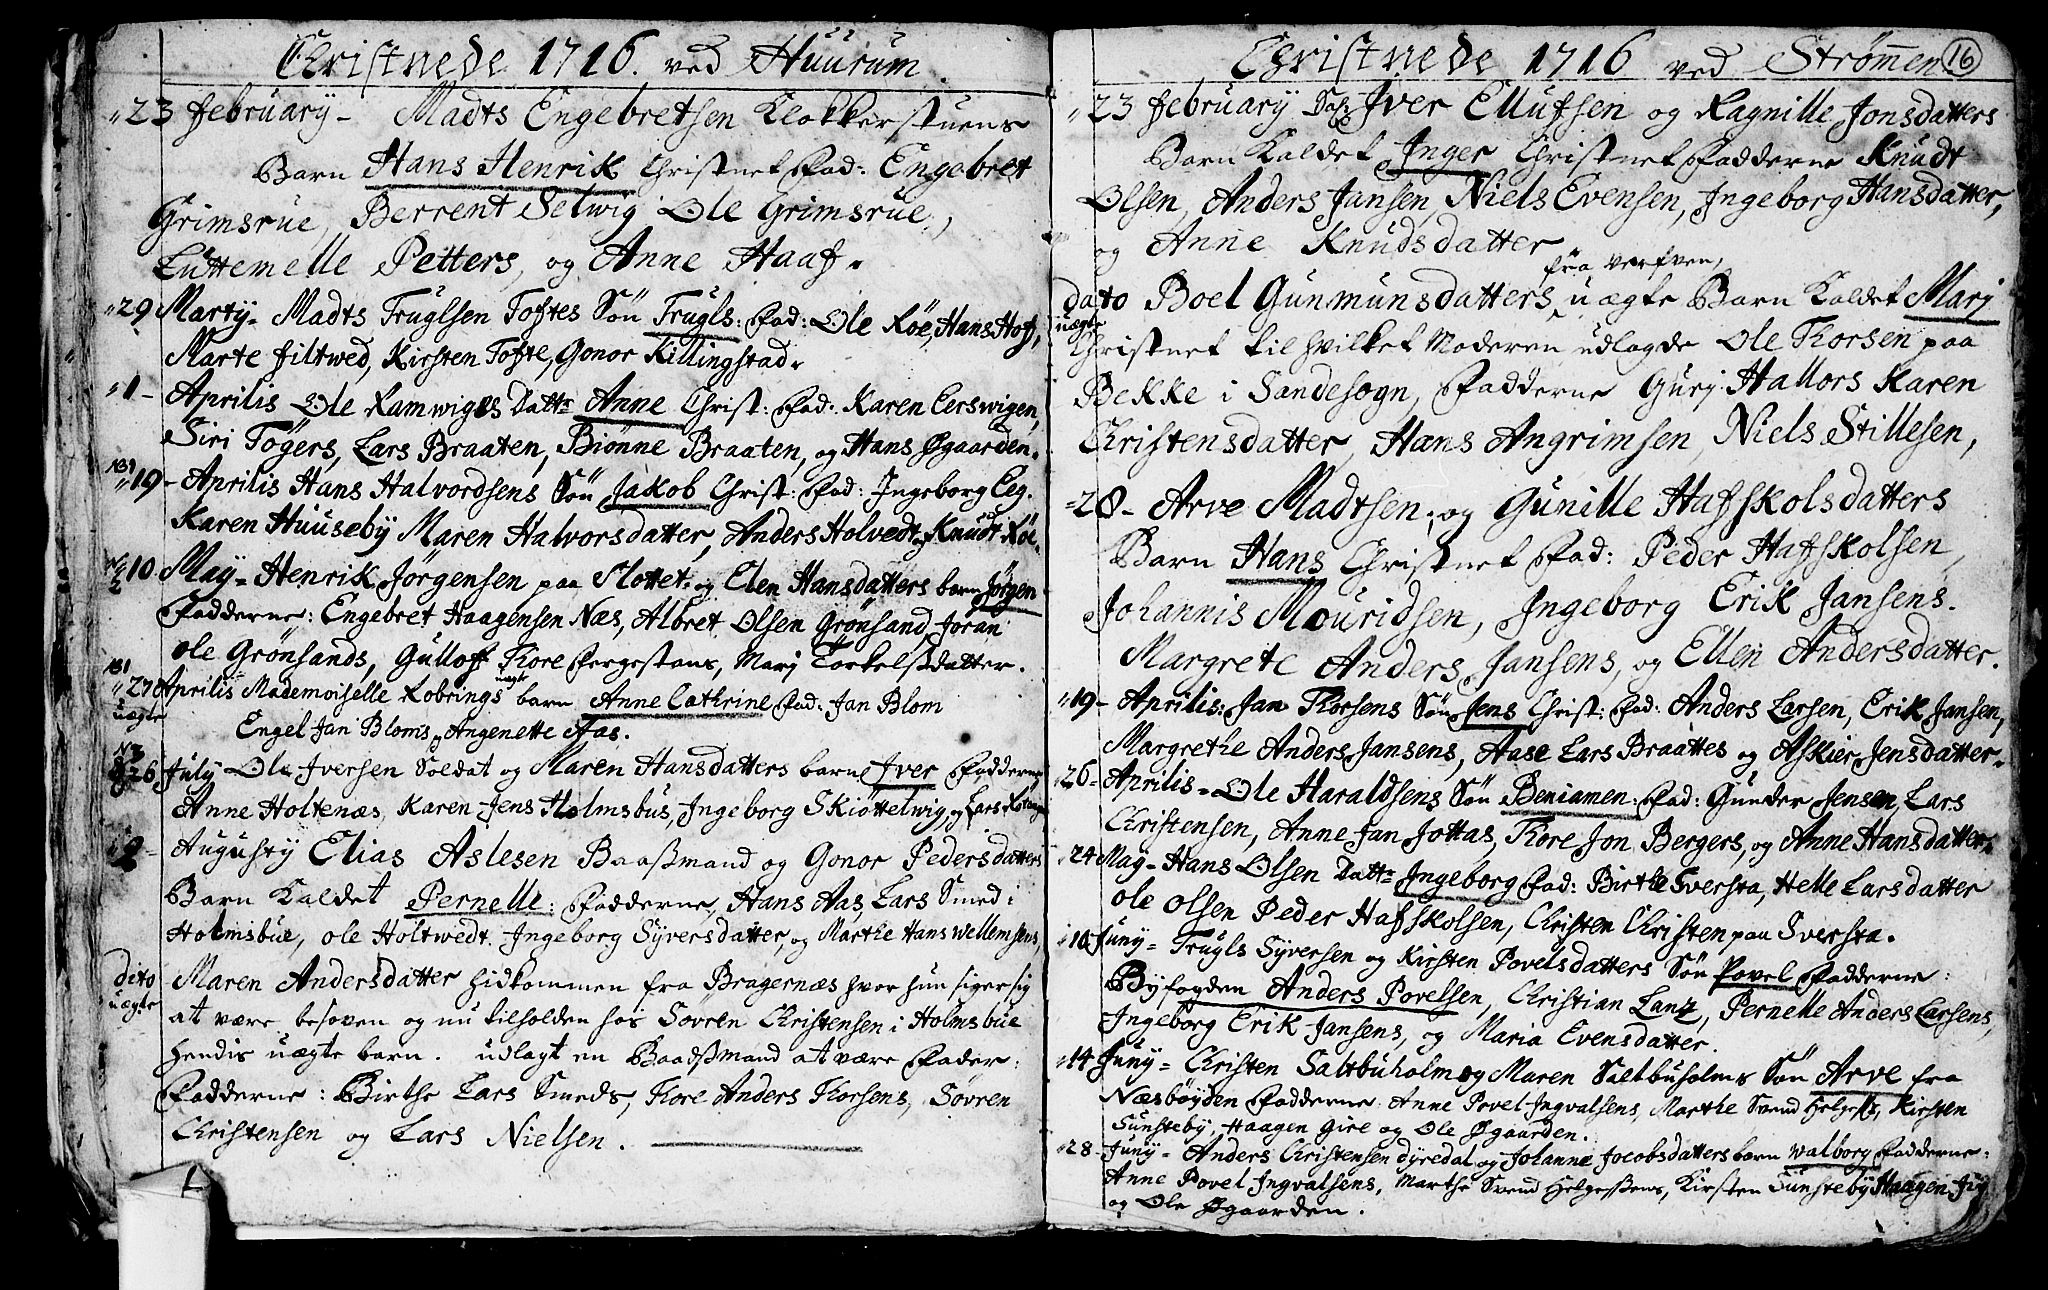 Christnede 1716. ved Huurum
23 february - Madts Engebretsen Klokkerstuens
Barn Hans Henrik Christnet Fad: Engebret
Grimsrue, Berrent Selwig Ole Grimsrue,
Luttemelle Petters, og Anne Haaf.
29 Marty - Madts Truglsen Toftes Sön Trugls: Fad: Ole Röe, Hans Hof,
Marte filtwed, Kirsten Tofte, Gonor Killingstad.
1 - Aprilis Ole Ramwiges Datr Anne Christ: Fad: Karen Eerswigen,
Siri Tögers, Lars Braaten, Biönne Braaten, og Hans Øgaarden.
19 - Aprilis Hans Halvordsens Sön Jakob Christ: Fad: Ingeborg Eeg.
Karen Huuseby Maren Halvorsdatter, Anders Holvedt og Knudt Röe.
10 May - Henrik Jörgensen paa Slottet og Elen Hansdatters barn Jörgen
Fadderne: Engebret Haagensen Næs, Albret Olsen Grönsand, Joran
ole Grönsands, Gulloff Tore Bergestans, Marj Torkelsdatter.
27 Aprilis Mademoiselle Robrings uægte barn Anne Cathrine Fad: Jan Blom
uægte
Engel Jan Bloms og Angenette Aas.
N3
26 July Ole Iversen Soldat og Maren Hansdatters barn Iver Fadderne
Anne Holtenæs, Karen Jens Holmsbus, Ingeborg Skiöttelwig, og Lars
2 - Augusty Elias Aslesen Baaßmand og Gonor Pedersdatters
Barn Kaldet Pernelle: Fadderne, Hans Aas, Lars Smed i
Holmsbue, ole Holtwedt. Ingeborg Syversdatter, og Marthe Hans Wellemsens
dito Maren Andersdatter hidkommen fra Bragernæs hvor hun siger sig
uægte
at være besoven og nu tilholden hos Sövren Christensen i Holmsbue
hendis uægte barn. udlagt en Baadßmand at være Fader:
Fadderne: Birthe Lars Smeds, Tore Anders Torsens, Sövren
Christensen og Lars Nielsen.
Christnede 1716 ved Strømmen 16
23 february Sol: Iver Ellufsen og Ragnille Jonsdatters
Barn Kaldet Inger Christnet Fadderne Knudt
Olsen, Anders Jansen Niels Evensen, Ingeborg Hansdatter,
og Anne Knudsdatter
fra verfven,
dato Boel Gunmunsdatters uægte Barn Kaldet Marj
uægte
Christnet til hvilket Moderen udlagde Ole Thorsen paa
Bekke i Sandesogn, Fadderne Gurj Hallors Karen
Christensdatter, Hans Angrimsen, Niels Stillesen,
28 - Arve Madtsen, og Gunille Hafskolsdatters
Barn Hans Christnet Fad: Peder Hafskolsen,
Johannis Mouridsen, Ingeborg Erik Jansens.
Margrete Anders Jansens, og Ellen Andersdatter.
19 - Aprilis: Jan Thorsens Sön Jens Christ: Fad: Anders Larsen, Erik Jansen,
Margrethe Anders Jansens, Aase Lars Braattes og Askier Jensdatter
26 - Aprilis - Ole Haraldsens Sön Beniamen: Fad: Gunder Jensen, Lars
Christensen, Anne Jan Jottas, Thore Jon Bergers, og Anne Hansdatter.
24 May - Hans Olsen Datr Ingeborg Fad: Birthe Sversta, Helle Larsdatter
ole olsen Peder Hafskolsen, Christen Christen paa Sversta.
Juny - Trugls Syversen og Kirsten Povelsdatters Sön Povel Fadderne:
Byfogden Anders Povelsen, Christian Lanz, Pernelle Anders Larsens,
Ingeborg Erik Jansens, og Maria Evensdatter.
14 Juny - Christen Saltbuholm og Maren Saltbuholms Sön Arve fra
Næsböyden Fadderne: Anne Povel Ingvalsens, Marthe Svend Helgeß, Kirsten
Sunsteby, Haagen Gire og Ole Øgaarden.
28 - Juny - Anders Christensen dyredal og Johanne Jacobsdatters barn Walborg Fadderne:
Anne Povel Ingvalsens, Marthe Svend Helgeßens, Kirsten Sunsteby Haagen
og Ole Øgaarden.